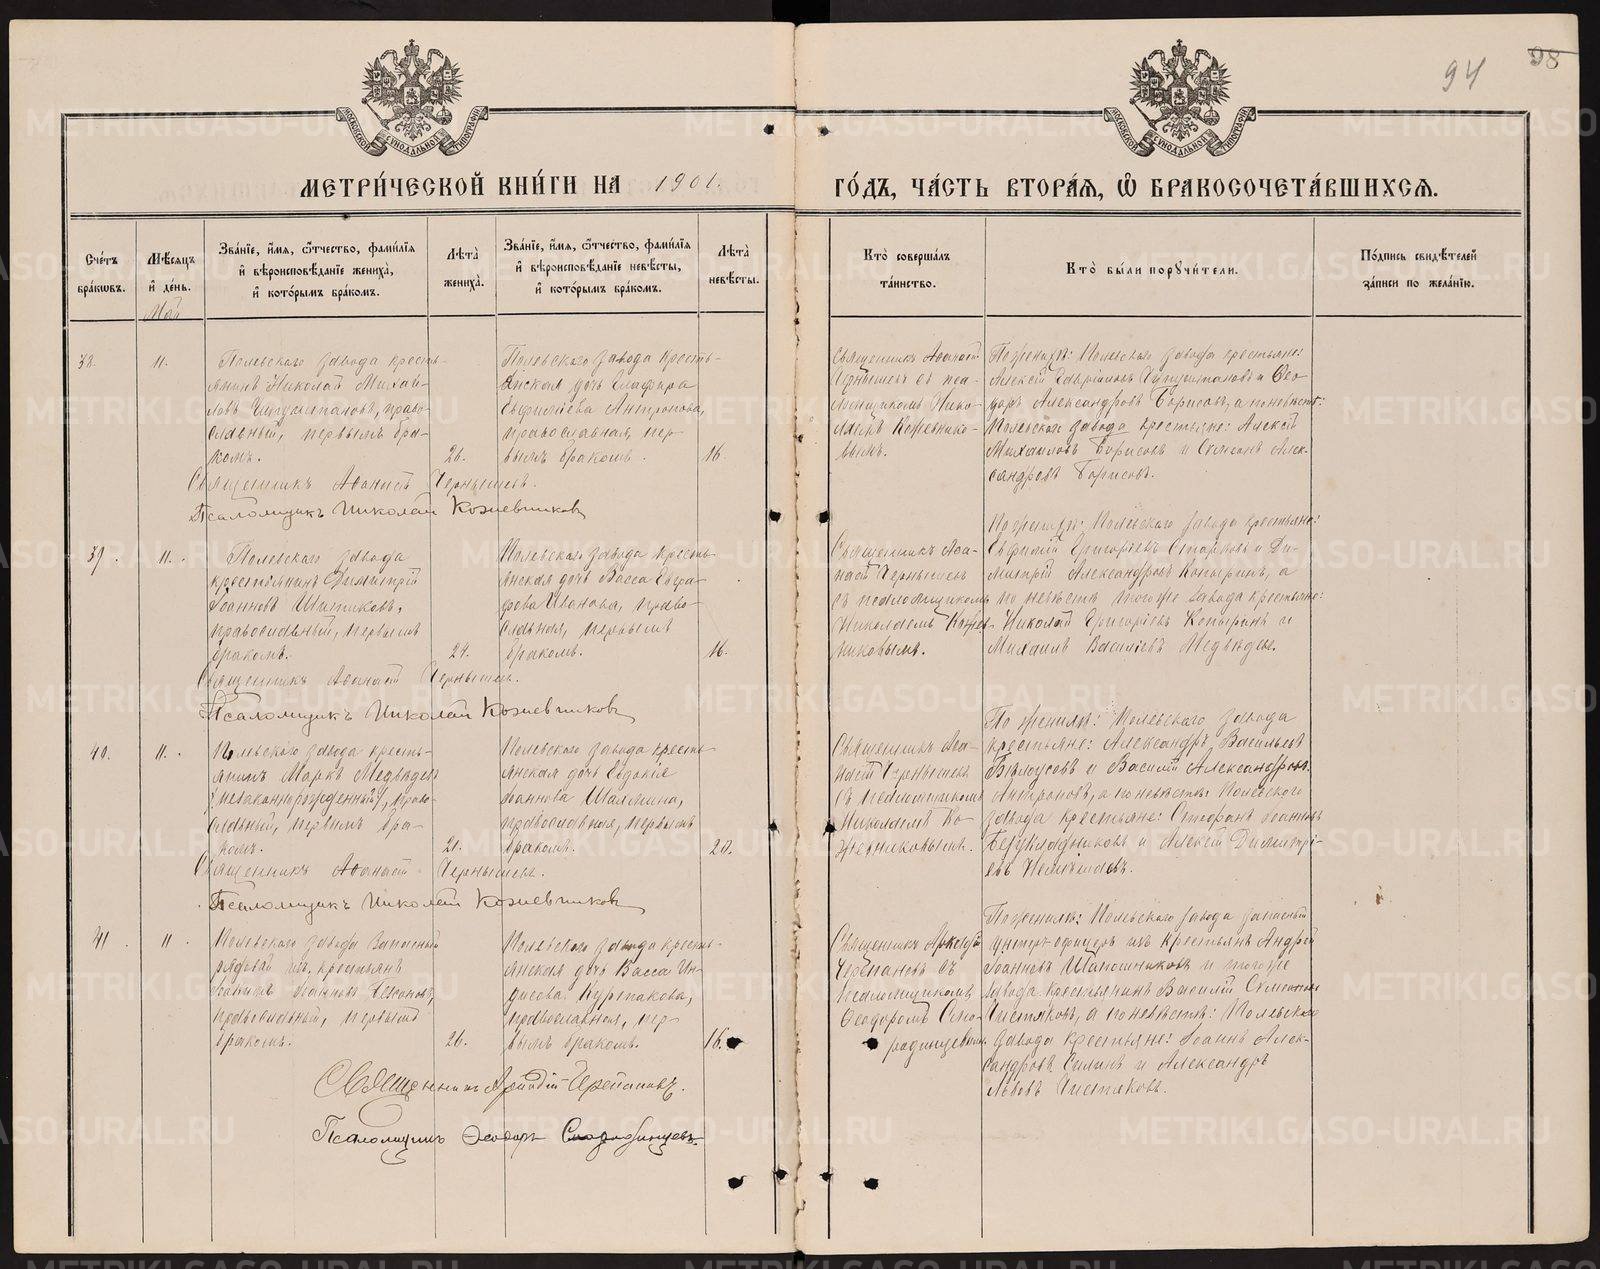 94
98
МОСКОВСКОЙ СѴНОДАЛЬНОЙ ТИПОГРАФІИ
МОСКОВСКОЙ СѴНОДАЛЬНОЙ ТИПОГРАФІИ
МЕТРИ́ЧЕСКОЙ КНИ́ГИ НА 1901.
ГО́ДЪ, ЧА́СТЬ ВТОРА́Я, Ѡ БРАКОСОЧЕТА́ВШИХСѦ.
Сче́тъ
бра́кѡвъ.
Мѣ́сѧцъ
и҆ де́нь.
Зва́нїе, и҆́мѧ, ѻ҆́тчество, фами́лїѧ
и҆ вѣроисповѣ́данїе жениха̀,
и҆ кото́рымъ бра́комъ.
Лѣ́та̀
жениха̀.
Зва́нїе, и҆́мѧ, ѻ҆́тчество, фами́лїѧ
и҆ вѣроисповѣ́данїе невѣ́сты,
и҆ кото́рымъ бра́комъ.
Лѣ́та̀
невѣ́сты.
Кто̀ соверша́лъ
та́инство.
Кто̀ бы́ли порꙋчи́тели.
По́дпись свидѣ́телей
за́писи по жела́нїю.
Май
38.
11.
Полевскаго завода кресть-
янинъ Николай Михай-
ловъ право-
славный, первымъ бра-
комъ.
26.
Полевскаго завода кресть-
янская дочь Глафира
Евфиміева Антропова,
православная, пер-
вымъ бракомъ.
16.
Священникъ Аѳанасій
Чернышевъ съ пса-
ломщикомъ Нико-
лаемъ Кожевнико-
вымъ.
По женихѣ: Полевскаго завода крестьяне:
Алексій и Ѳео-
доръ Александровъ Борисовъ, а по невѣстѣ:
Полевскаго завода крестьяне: Алексій
Михаиловъ Борисовъ и Симеонъ Алек-
сандровъ Борисовъ.
Священникъ Аѳанасій Чернышевъ.
Псаломщикъ Николай Кожевниковъ
39.
11.
Полевскаго завода
крестьянинъ Димитрій
Іоанновъ
православный, первымъ
бракомъ.
24.
Полевскаго завода кресть-
янская дочь Васса Евгра-
фова Иванова, право-
славная, первымъ
бракомъ.
16.
Священникъ Аѳа-
насій Чернышевъ
съ псаломщикомъ
Николаемъ Кожев-
никовымъ.
По женихѣ: Полевскаго завода крестьяне:
Евфимій Григоріевъ Старковъ и Ди-
митрій Александровъ Копыринъ, а
по невѣстѣ тогоже завода крестьяне:
Николай Григоріевъ Копыринъ и
Михаилъ Василіевъ Медвѣдевъ.
Священникъ Аѳанасій Чернышевъ.
Псаломщикъ Николай Кожевниковъ
40.
11.
Полевскаго завода кресть-
янинъ Маркъ Медвѣдевъ
(незаконнорожденный), право-
славный, первымъ бра-
комъ.
21.
Полевскаго завода кресть-
янская дочь Евдокія
Іоаннова Шалмина,
православная, первымъ
бракомъ.
20.
Священникъ Аѳа-
насій Чернышевъ
съ псаломщикомъ
Николаемъ Ко-
жевниковымъ.
По женихѣ: Полевскаго завода
крестьяне: Александръ Васильевъ
Бѣлоусовъ и Василій Александровъ
Антроповъ, а по невѣстѣ: Полевскаго
завода крестьяне: Стефанъ Іоанновъ
и Алексій Димитрі-
евъ
Священникъ Аѳанасій Чернышевъ.
Псаломщикъ Николай Кожевниковъ
41.
11.
Полевскаго завода запасный
рядовой изъ крестьянъ
Іоанновъ
православный, первымъ
бракомъ.
26.
Полевскаго завода кресть-
янская дочь Васса
Куртакова,
православная, пер-
вымъ бракомъ.
16.
Священникъ Аркадій
Черепановъ съ
псаломщикомъ
Ѳеодоромъ Ско-
родинцевымъ.
По женихѣ: Полевскаго завода запасный
унтеръ-офицеръ изъ крестьянъ Андрей
Іоанновъ Шапошниковъ и тогоже
завода крестьянинъ Василій Симеоновъ
Чистяковъ, а по невѣстѣ: Полевскаго
завода крестьяне: Іоаннъ Алек-
сандровъ Силинъ и Александръ
Львовъ Чистяковъ.
Священникъ Аркадій Черепановъ.
Псаломщикъ Ѳеодоръ Скородинцевъ.
METRIKI.GASO-URAL.RU